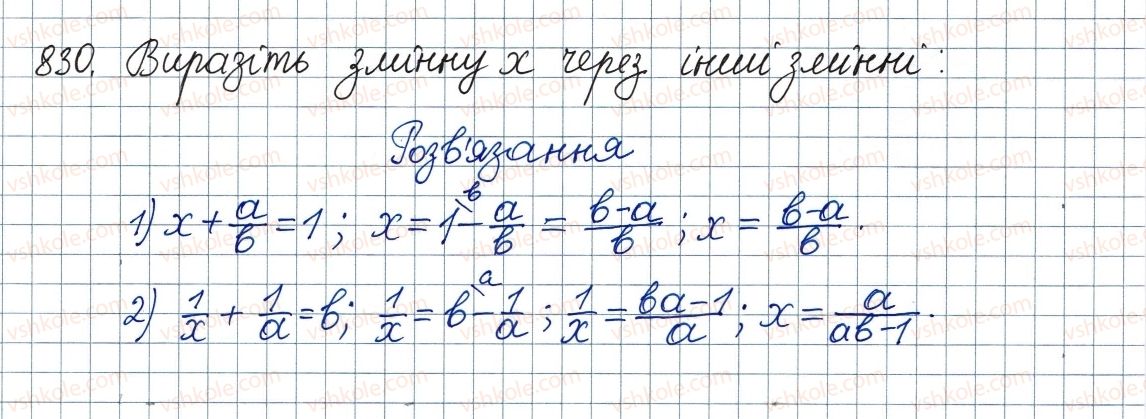 830. Виразіть змінну x через інші змінні:
Розв'язання
1) x + a/b = 1; x = 1\b - a/b = (b-a)/b; x = (b-a)/b.
2) 1/x + 1/a = b; 1/x = b\a - 1/a; 1/x = (ba-1)/a; x = a/(ab-1).